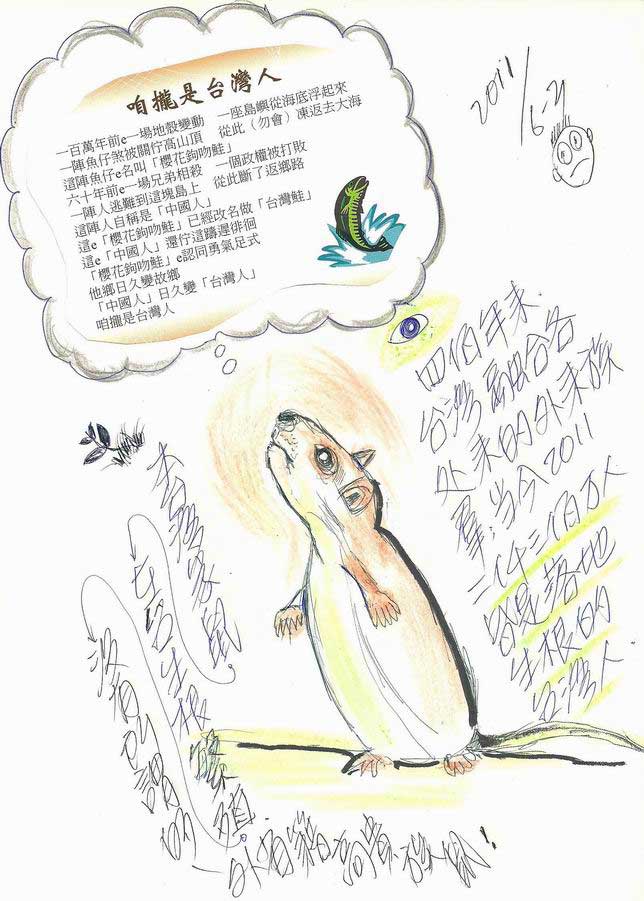 咱攏是台灣人
一百萬年前e一場地殼變動　一座島嶼從海底浮起來
一陣魚仔煞被關佇高山頂　從此（勿會）凍返去大海
這陣魚仔e名叫「櫻花鉤吻鮭」
六十年前e一場兄弟相殺　一個政權被打敗
一陣人逃難到這塊島上　從此斷了返鄉路
這陣人自稱是「中國人」
這e「櫻花鉤吻鮭」已經改名做「台灣鮭」
這e「中國人」還佇這躊躇徘徊
「櫻花鉤吻鮭」e認同勇氣足式
他鄉日久變故鄉
「中國人」日久變「台灣人」
咱攏是台灣人
2011/6-2
四佰年來
台灣融合各
處來的外來族
羣當今2011
二仟三佰万人
皆是落地
生根的
台灣人
生根
沒有所謂的
外省籍